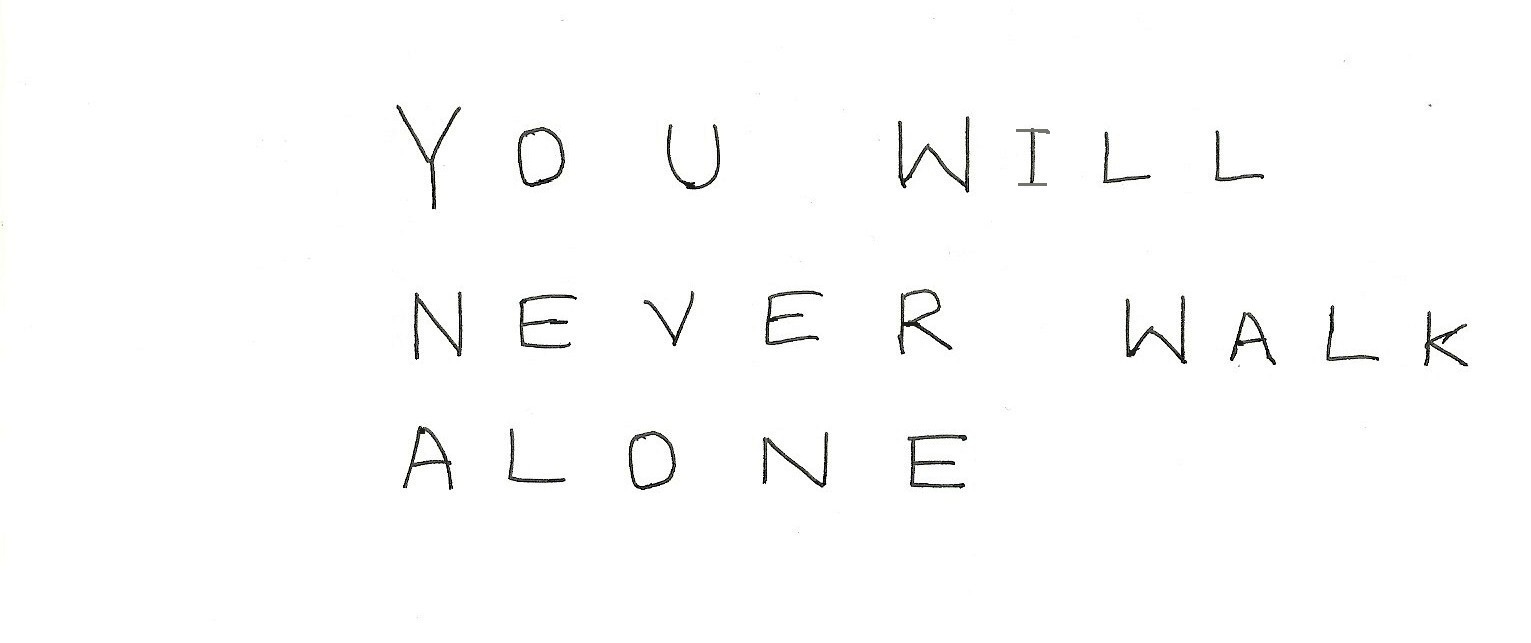 YOU WILL
NEVER WALK
ALONE